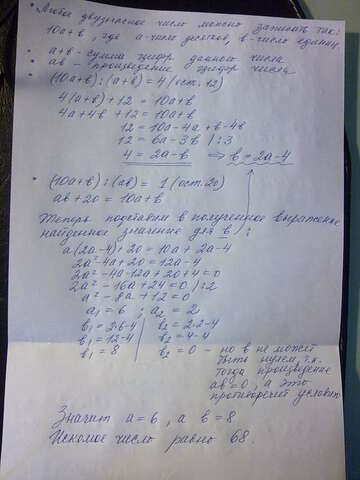 • Любое двузначное число можно записать так:
10a+в, где a-число десятков, в-число единиц.
• a+в - сумма цифр данного числа
aв - произведение цифр числа
• (10a+в):(a+в)=4(ост.12)
4(a+в)+12=10a+в
4a+4в+12=10a+в
12=10a-4a+в-4в
12=6a-3в /:3
4=2a-в ⇒ в=2a-4
• (10a+в):(aв)=1(ост.20)
aв+20=10a+в
Теперь подставим в полученное выражение
найденное значение для в/:
a(2a-4)+20=10a+2a-4
2a²-4a+20=12a-4
2a²-4a-12a+20+4=0
2a²-16a+24=0/:2
a²-8a+12=0
a₁=6, a₂=2
в₁=2·6-4 в₂=2·2-4
в₁=12-4 в₂=4-4
в₁=8 в₂=0 - но в не может
быть нулем, т.к.
тогда произведение
aв=0, а это
противоречит условию
Значит a=6, а в=8
Искомое число равно 68.